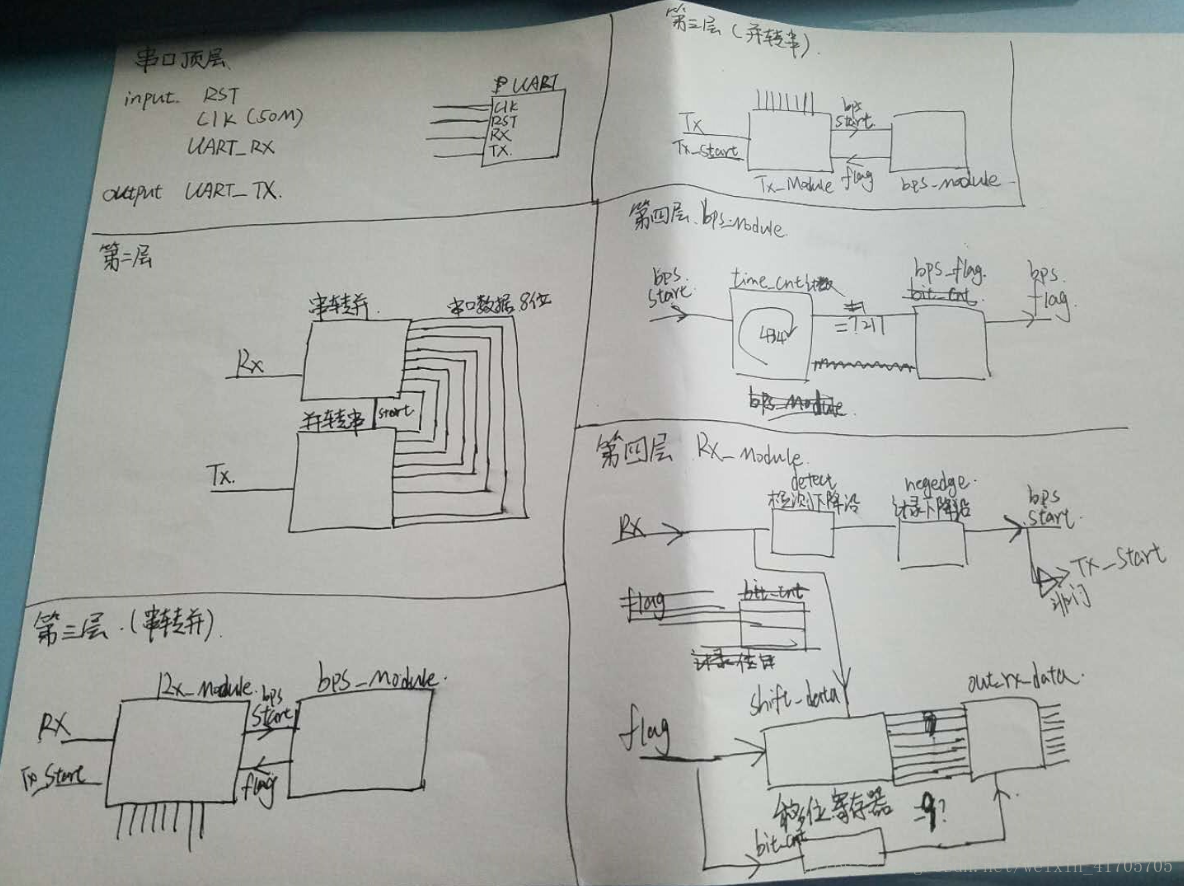 串口顶层
input. RST
CLK (50M)
UART_RX
output UART_TX.
UART
CLK
RST
RX
TX.
第二层
串转并.
串口数据8位
Rx
并转串
start
Tx.
第三层.(串转并).
Rx_module.
bps_module.
RX
bps
start
Tx_Start
flag
第三层(并转串).
Tx
bps
start.
Tx_start
Tx_Module
flag
bps_module
第四层.bps_module
bps.
start
time_cnt计数
bps_flag.
bit_cnt.
bps
flag
434
=?217
bps_module.
第四层 Rx_module.
detect
检测下降沿
negedge.
记录下降沿
bps
start.
Rx
Tx_Start
非门
flag
bit_cnt
shift_data
out_rx_data.
flag
移位寄存器
=9?
bit_cnt
weixin_41705705